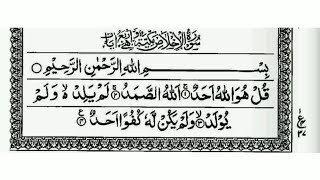 سُوْرَةُ الْاِخْلَاصِ مَكِّيَّةٌ وَّهِيَ اَرْبَعُ اٰيَاتٍ
بِسْمِ اللهِ الرَّحْمٰنِ الرَّحِيْمِ
قُلْ هُوَ اللهُ اَحَدٌ ۚ اَللهُ الصَّمَدُ ۚ لَمْ يَلِدْ ۙ وَلَمْ
يُوْلَدْ ۙ وَلَمْ يَكُنْ لَّهٗ كُفُوًا اَحَدٌ ۧ